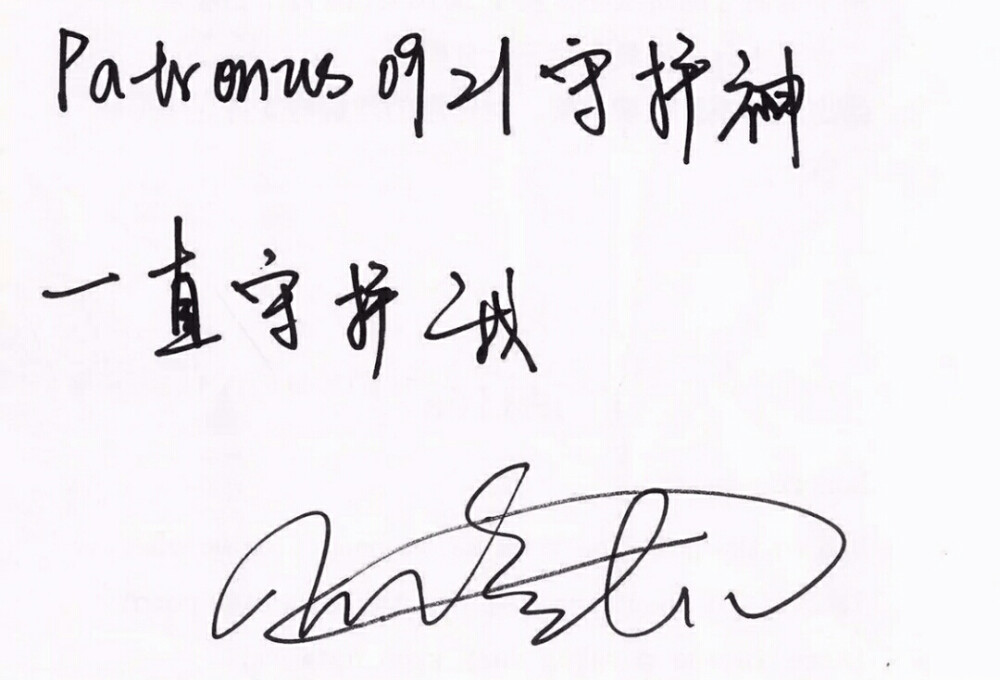 Patronus 0921 守护神
一直守护我